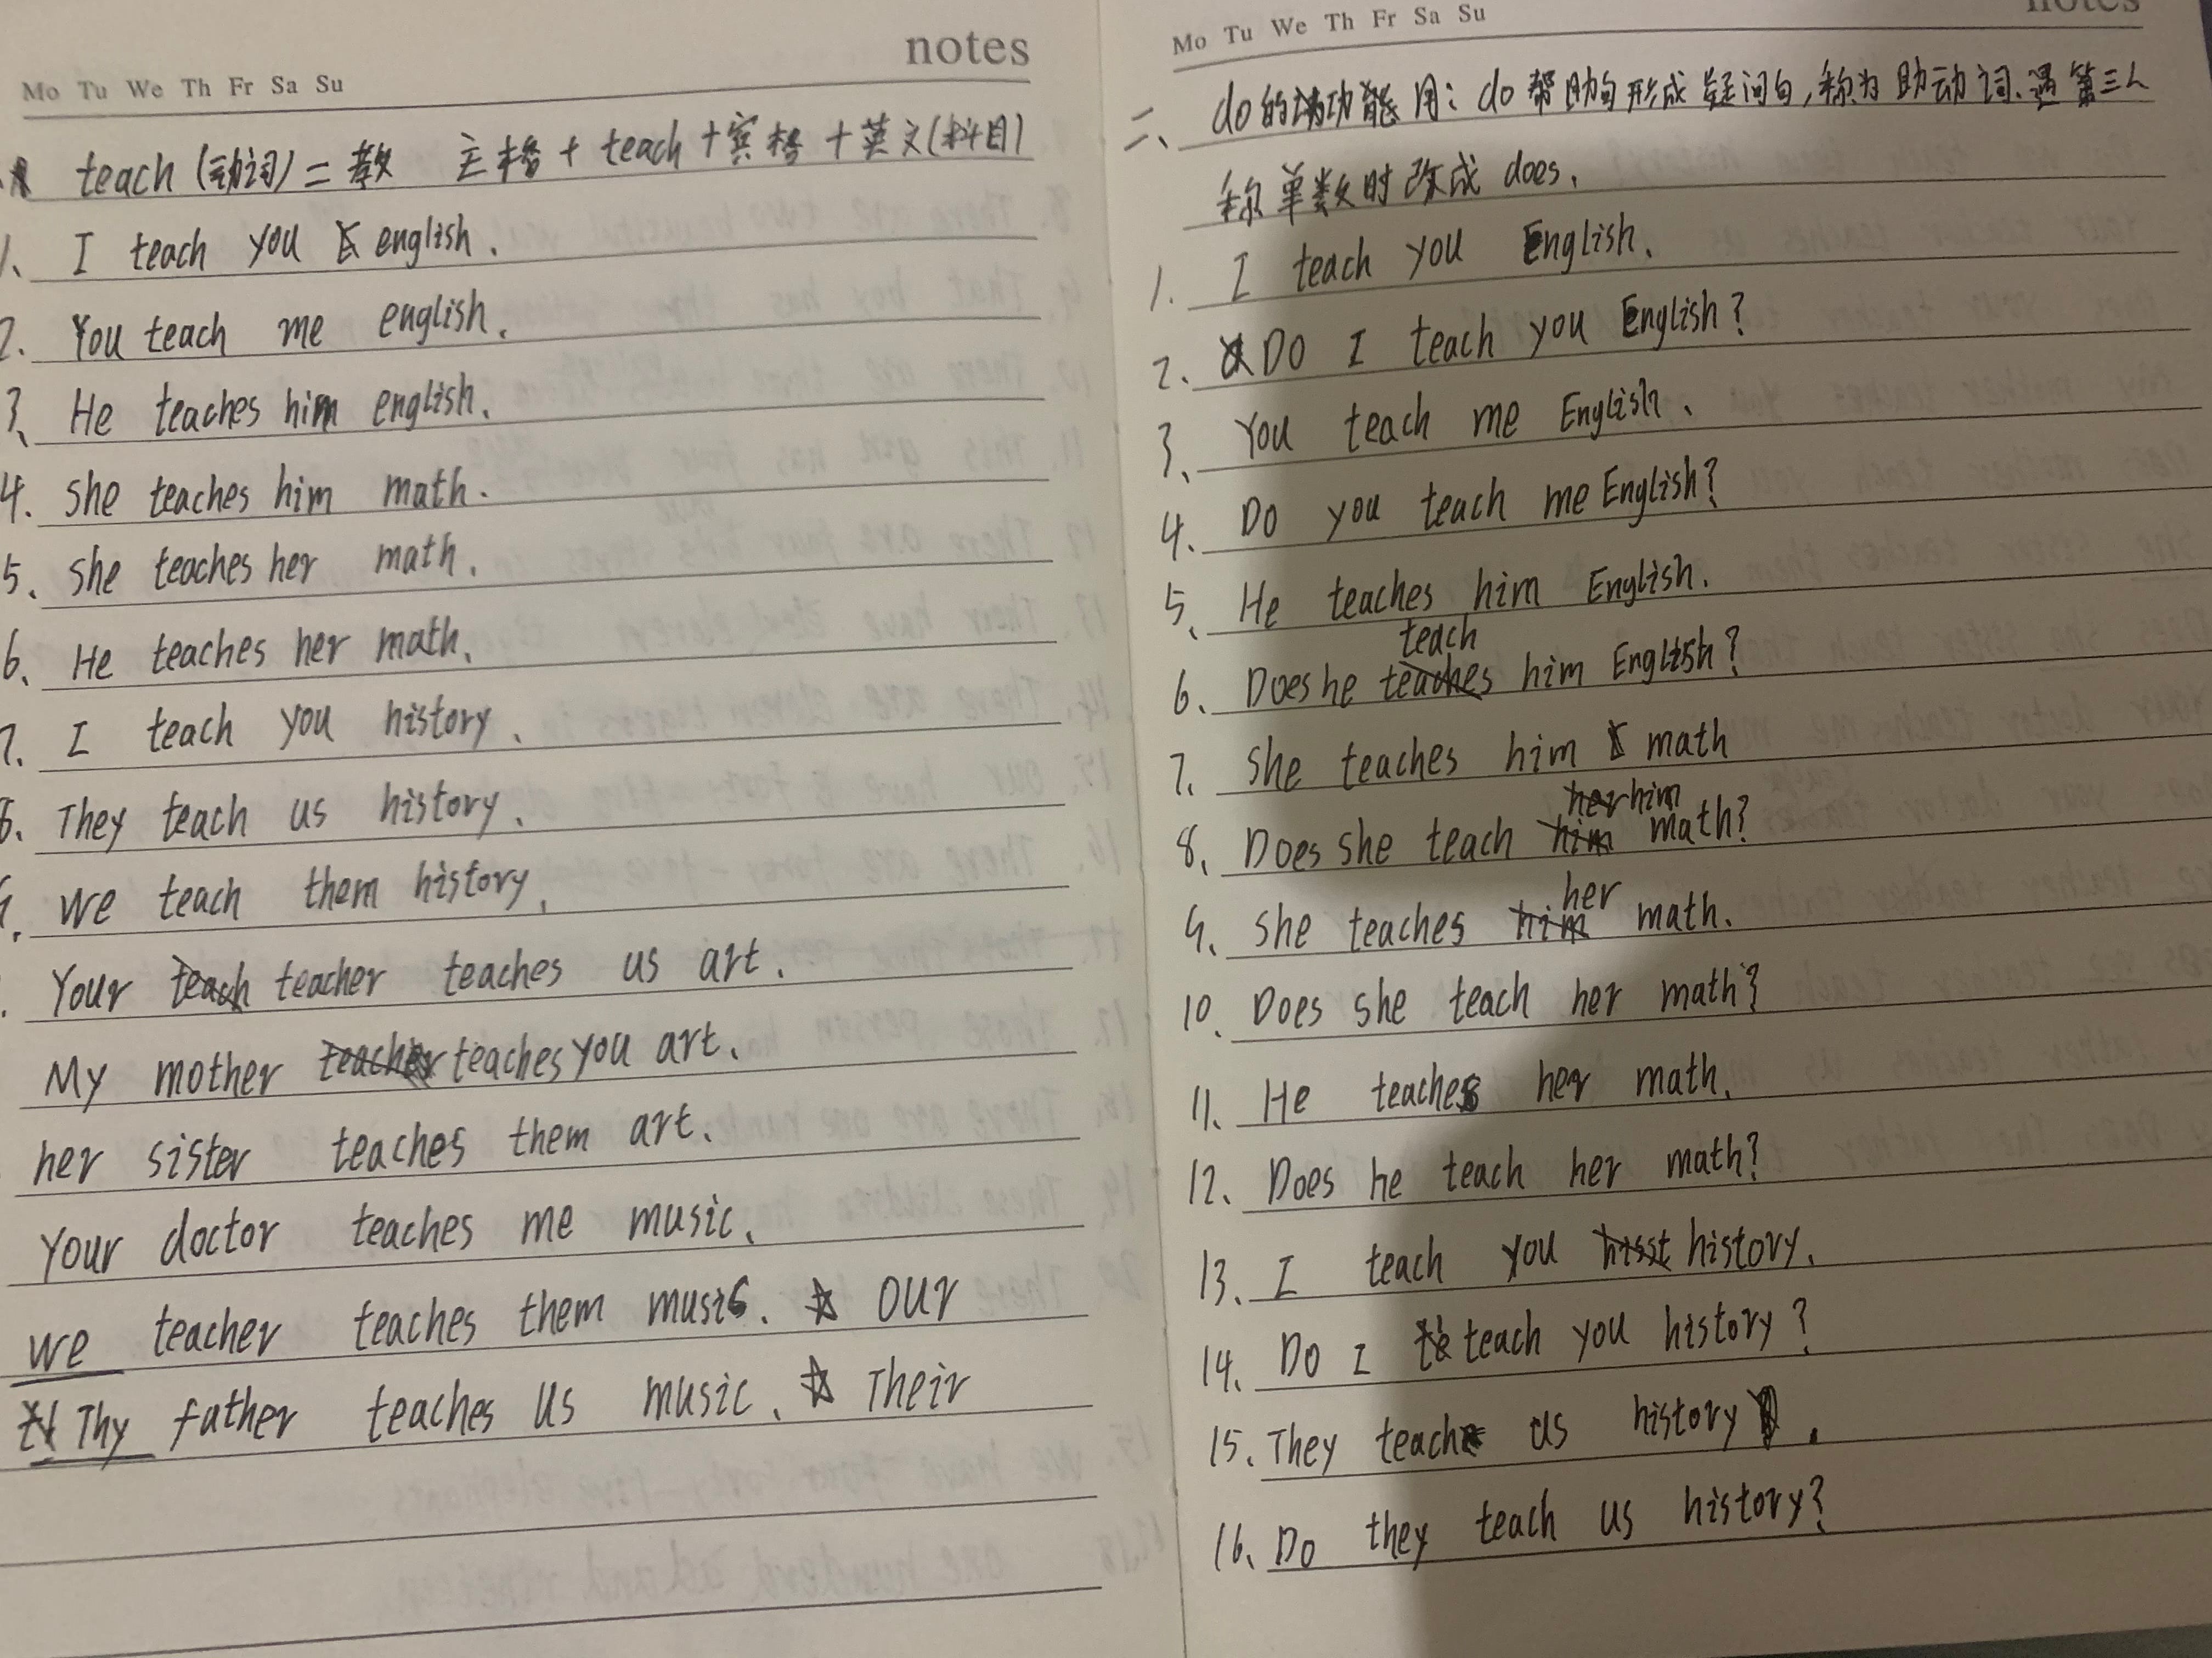 notes
Mo Tu We Th Fr Sa Su
teach (动词) = 教 主格 + teach +宾格 + 英文(科目)
1、 I teach you english.
2. You teach me english.
3、 He teaches him english.
4. She teaches him math.
5、 She teaches her math.
6、 He teaches her math.
7. I teach you history.
8. They teach us history.
9. We teach them history.
Your teach teacher teaches us art.
My mother teacher teaches you art.
her sister teaches them art.
Your doctor teaches me music.
we teacher teaches them music. ☆ our
Thy father teaches us music. ☆ Their
notes
Mo Tu We Th Fr Sa Su
二、 do的功能用: do帮助句形成疑问句,称为助动词.遇第三人
称单数时改成 does.
1. I teach you English.
2. Do I teach you English?
3、 You teach me English.
4. Do you teach me English?
5、 He teaches him English.
teach
6、 Does he teaches him English?
7. She teaches him math
her him
8、 Does she teach him math?
her
9、 She teaches him math.
10、 Does she teach her math?
11、 He teaches her math.
12、 Does he teach her math?
13、 I teach you hisst history.
14、 Do I te teach you history?
15. They teach us history.
16、 Do they teach us history?